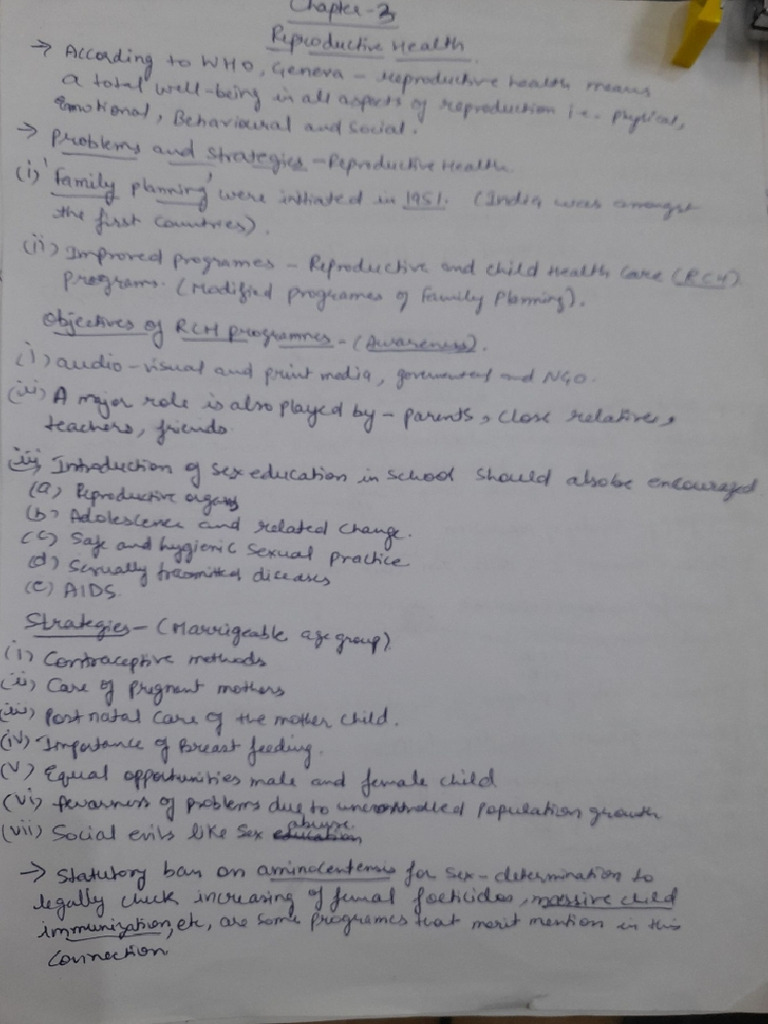 Chapter-3
Reproductive Health
→ According to WHO, Geneva - reproductive health means
a total well-being in all aspects of reproduction i.e. physical,
Emotional, Behavioural and Social.
→ Problems and strategies - Reproductive Health
(i) 'Family planning' were initiated in 1951. (India was amongst
the first countries).
(ii) Improved programes - Reproductive and child Health Care (RCH)
programs. (Modified programes of Family Planning).
Objectives of RCH programmes - (Awareness).
(i) audio-visual and print media, government and NGO.
(ii) A major role is also played by - parents, close relatives,
teachers, friends.
(iii) Introduction of sex education in school should also be encouraged
(a) Reproductive organs
(b) Adolescence and related change.
(c) Safe and hygienic sexual practice
(d) Sexually transmitted diseases
(e) AIDS.
Strategies - (Marrigeable age group)
(i) Contraceptive methods
(ii) Care of pregnent mothers
(iii) Post natal care of the mother child.
(iv) Importance of Breast feeding.
(v) Equal opportunities male and female child
(vi) Awarness of problems due to uncontrolled population growth
(vii) Social evils like sex education abuse.
→ Statutory ban on for sex-determination to
legally check increasing of femal foeticides, massive child
immunization, etc, are some programes that merit mention in this
connection